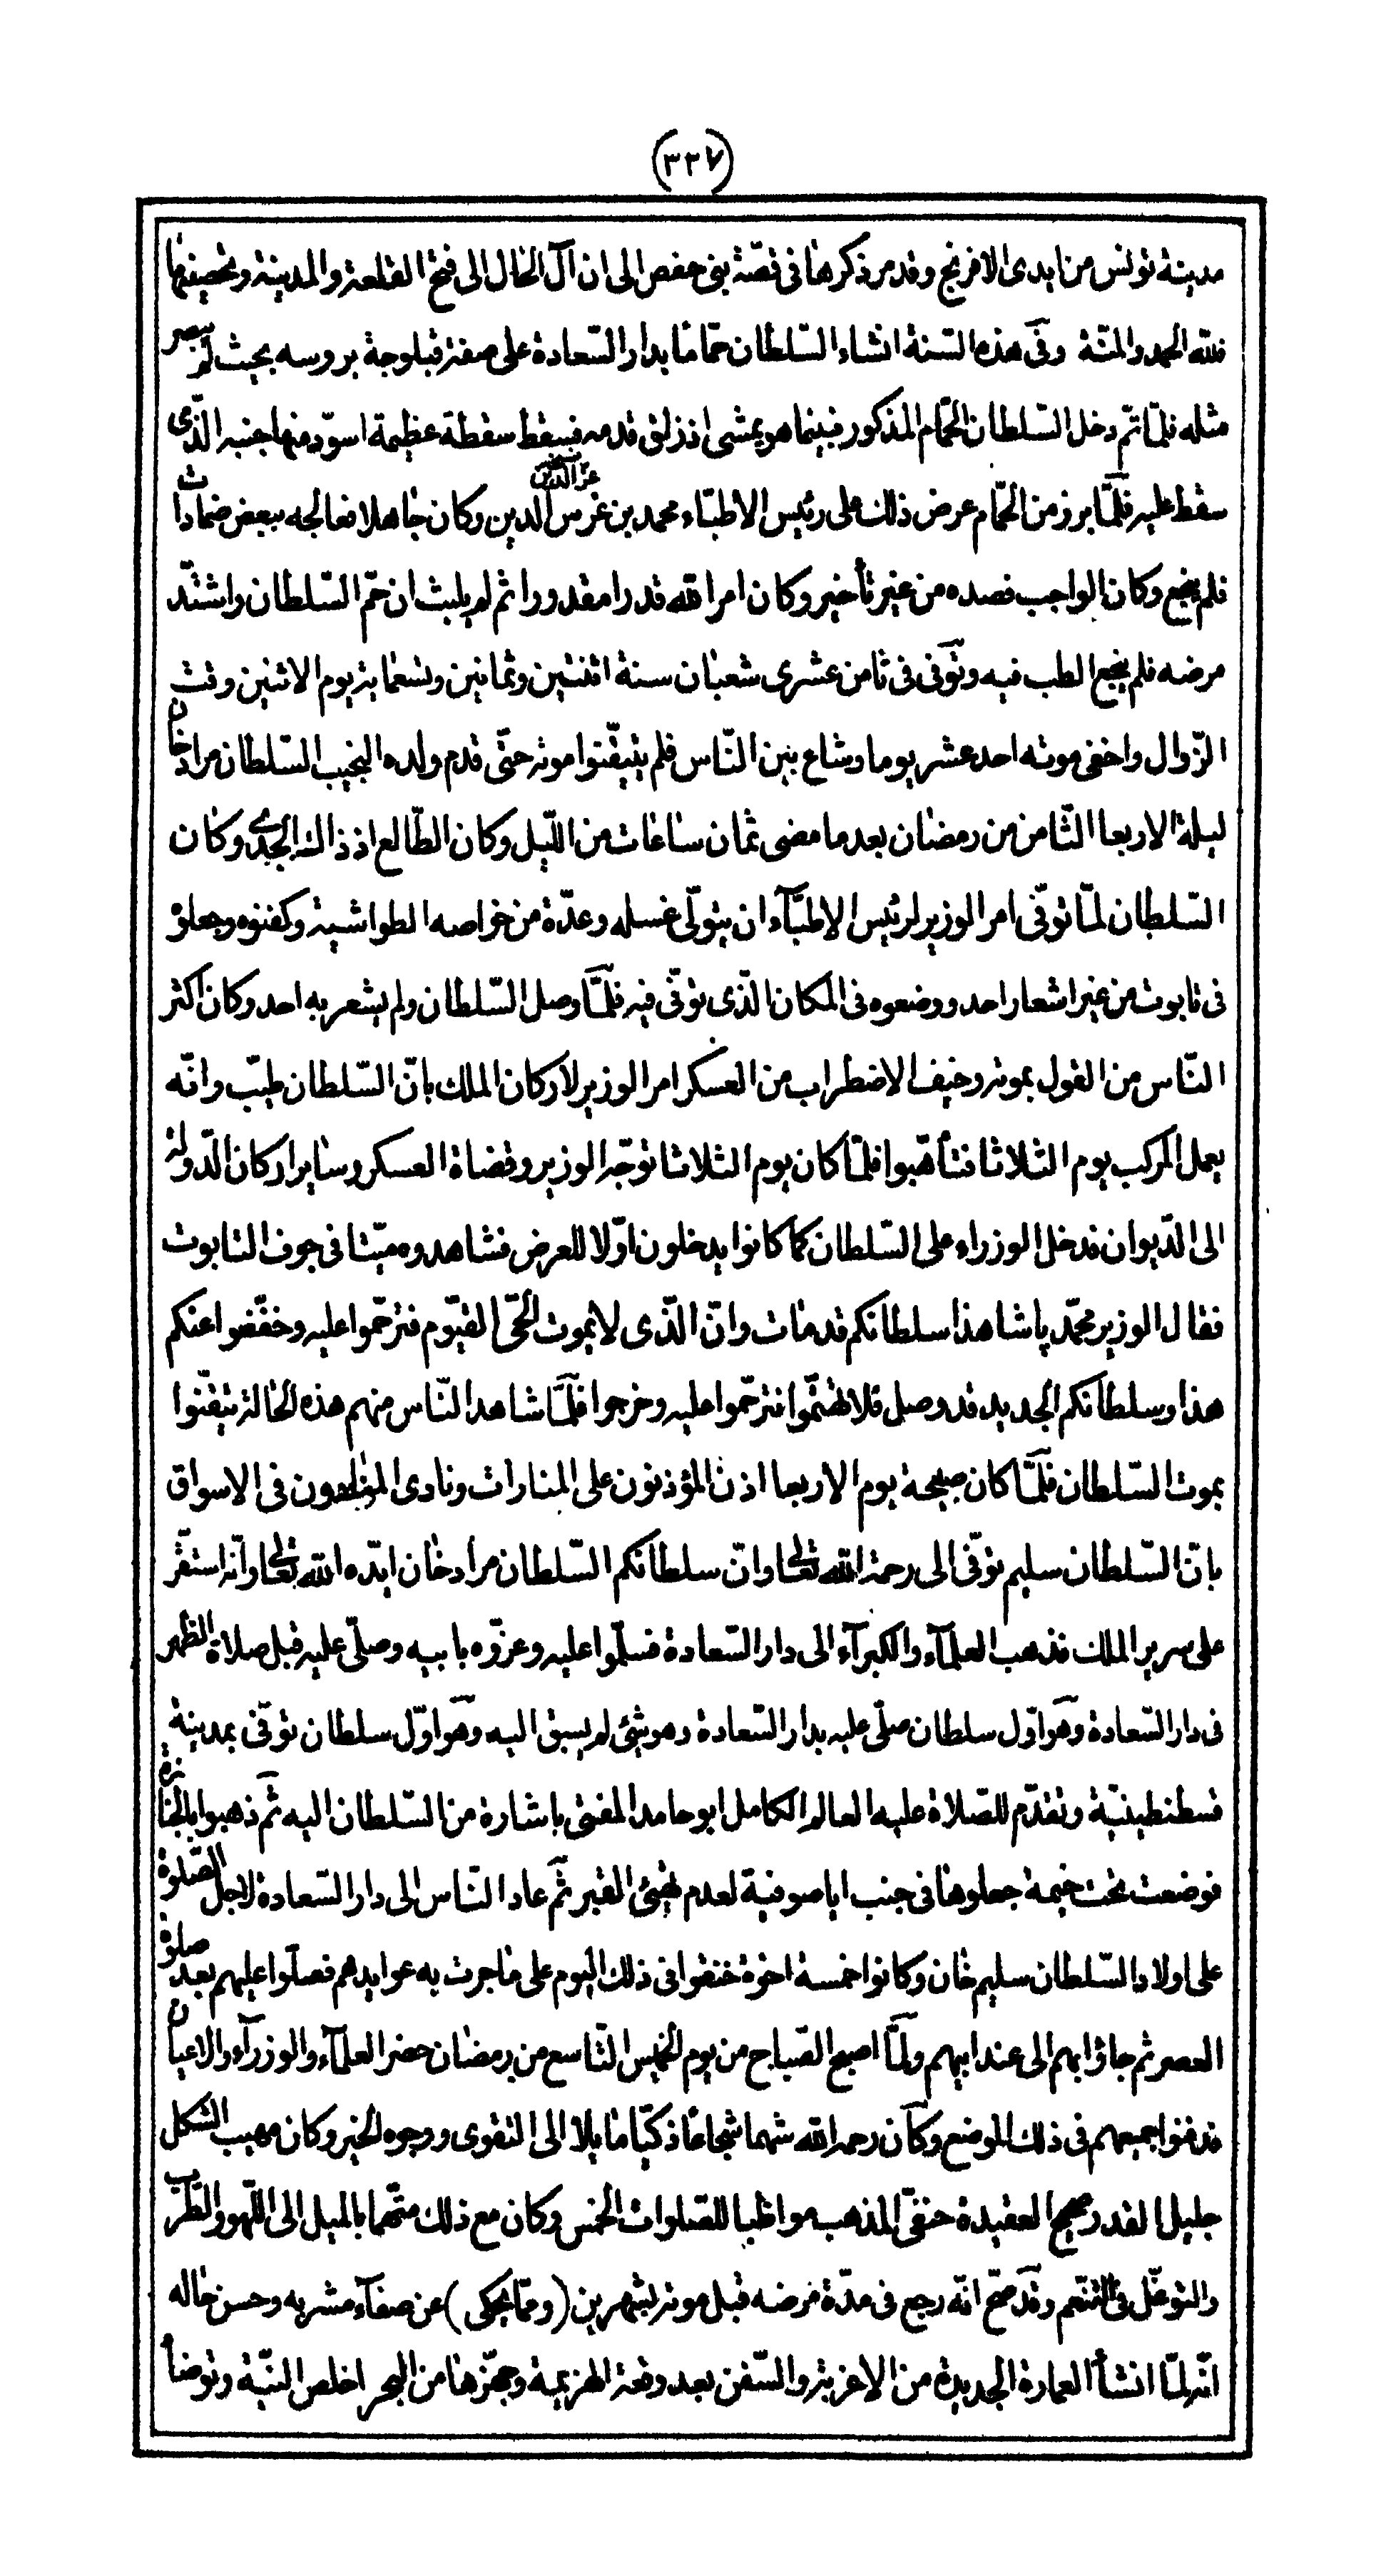 (٣٣٧)
مدينة تونس من ايدى الافرنج وقد مر ذكرها فى قصّة بنى حفص الى ان آل الحال الى فتح القلعة والمدينة وتحصينها
فلله الحمد والمنّة وفى هذه السّنة انشاء السّلطان حمّاما بدار السّعادة على صفة قبلوجة بروسه بحيث لم ير
مثله فلمّا تمّ دخل السّلطان الحمّام المذكور فبينما هو يمشى اذ زلق قدمه فسقط سقطة عظيمة اسودّ منها جنبه الذّى
سقط عليه فلمّا برز من الحمّام عرض ذلك على رئيس الاطبّاء محمد بن غرس الدين وكان جاهلا فعالجه ببعض ضمادات
عزّ الدّين
فلم ينجع وكان الواجب فصده من غير تأخير وكان امر الله قدرا مقدورا ثم لم يلبث ان حمّ السّلطان واشتدّ
مرضه فلم ينجع الطب فيه وتوفى فى ثامن عشرى شعبان سنة اثنتين وثمانين وتسعماية يوم الاثنين وقت
الزّوال واخفى موته احد عشر يوما وشاع بين النّاس فلم يتيقّنوا موته حتّى قدم ولده النجيب السّلطان مراد خان
ليلة الاربعا الثّامن من رمضان بعد ما مضى ثمان ساعات من اللّيل وكان الطّالع اذ ذاك الجدى وكان
السّلطان لمّا توفّى امر الوزير لرئيس الاطبّآء ان يتولّى غسله وعدّة من خواصه الطواشية وكفنوه وجعلوه
فى تابوت من غير اشعار احد ووضعوه فى المكان الذّى توفّى فيه فلمّا وصل السّلطان ولم يشعر به احد وكان اكثر
النّاس من القول بموته وخيف الاضطراب من العسكر امر الوزير لاركان الملك بانّ السّلطان طيّب وانّه
يعمل المركب يوم الثلاثا فتأهّبوا فلمّا كان يوم الثلاثا توجّه الوزير وقضاة العسكر وساير اركان الدّولة
الى الدّيوان فدخل الوزراء على السّلطان كما كانوا يدخلون اوّلا للعرض فشاهدوه ميّتا فى جوف التابوت
فقال الوزير محمّد پاشا هذا سلطانكم قد مات وانّ الذّى لا يموت الحىّ القيّوم فترحّموا عليه وخفّفوا عنكم
هذا وسلطانكم الجديد قد وصل فلا تهتمّوا فترحّموا عليه وخرجوا فلمّا شاهد النّاس منهم هذه الحالة تيقّنوا
بموت السّلطان فلمّا كان صبيحة يوم الاربعا اذن المؤذنون على المنارات ونادى المنادون فى الاسواق
بانّ السّلطان سليم توفّى الى رحمة الله تعالى وانّ سلطانكم السّلطان مراد خان ايّده الله تعالى وانّه استقرّ
على سرير الملك فذهب العلمآء والكبرآء الى دار السّعادة فسلّموا عليه وعزّوه بابيه وصلّى عليه قبل صلاة الظهر
فى دار السّعادة وهو اوّل سلطان صلّى عليه بدار السّعادة وهو شئ لم يسبق اليه وهو اوّل سلطان توفّى بمدينة
قسطنطينيّة وتقدّم للصّلاة عليه العالم الكامل ابو حامد المفتى باشارة من السّلطان اليه ثمّ ذهبوا بالجنازة
فوضعت تحت خيمة جعلوها فى جنب اياصوفية لعدم تهيّئ القبر ثمّ عاد النّاس الى دار السّعادة لاجل الصّلوة
على اولاد السّلطان سليم خان وكانوا خمسة اخوة خنقوا فى ذلك اليوم على ما جرت به عوايدهم فصلّوا عليهم بعد صلوة
العصر ثم جاؤا بهم الى عند ابيهم ولمّا اصبح الصّباح من يوم الخميس التّاسع من رمضان حضر العلمآء والوزرآء والاعيان
فدفنوا جميعهم فى ذلك الموضع وكان رحمه الله شهما شجاعا ذكيّا مايلا الى التقوى ووجوه الخير وكان مهيب الشكل
جليل القدر صحيح العقيدة حنفىّ المذهب مواظبا للصّلوات الخمس وكان مع ذلك متّهما بالميل الى اللّهو والطّرب
والتوغّل فى التنعّم وقد صحّ انّه رجع فى مدّة مرضه قبل موته بشهرين (وممّا يحكى) عن صفآء مشربه وحسن حاله
انّه لمّا انشأ العمارة الجديدة من الاغربة والسّفن بعد وقعة الهزيمة وجهّزها من البحر اخلص النيّة وتوضأ